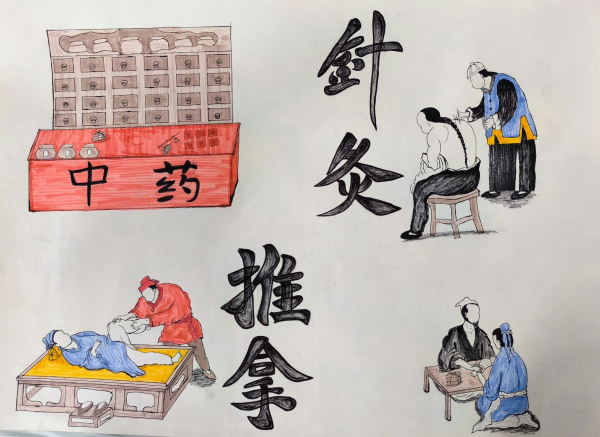 中药
針灸
推拿